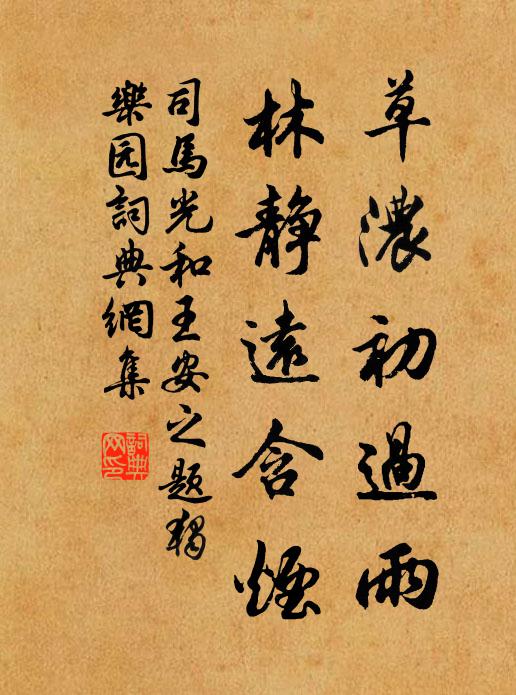 草濃初過雨
林靜遠含煙
司馬光和王安之題獨
樂园詞典網集
詞典
网印